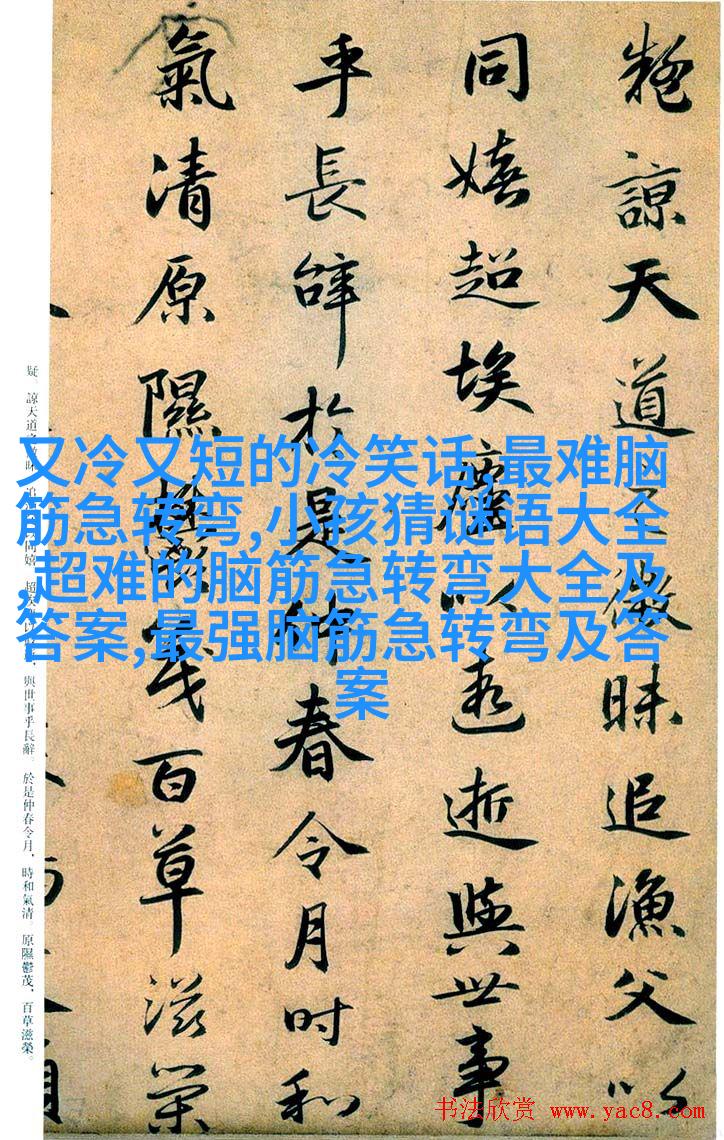 疑諒天道之微昧追漁父以
同嬉超埃塵以遐逝與世事
乎長辭於是仲春令月時和
氣清原隰鬱茂百草滋榮
疑。諒天道之微昧，追漁父以同嬉。超埃塵以遐逝，與世事乎長辭。於是仲春令月，時和氣清。原隰鬱茂，百草滋榮。
又冷又短的冷笑话,最难脑
筋急转弯,小孩猜谜语大全
,超难的脑筋急转弯大全及
答案,最强脑筋急转弯及答
案
书法欣赏 www.yac8.com